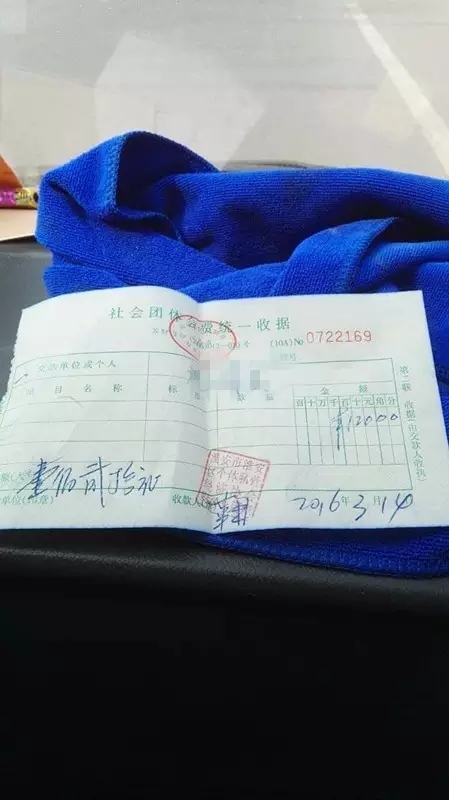 社会团体会费统一收据
(10A) No 0722169
交款单位或个人
项目名称
标
数额
金额
百十万千百十元角分
¥12000
第二联
收据(由交款人收执)
壹佰贰拾元
收款人
2016年3月14